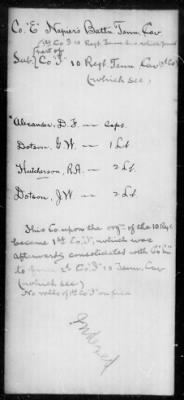 Co. "E" Napier's Battn Tenn Cav
1st Co. F 10 Regt Tenn Cav which formed
part of
Sub. Co. "F" 10 Regt. Tenn Cav (2d Co)
(which see)
Alexander, D. F. — Capt.
Dotson, J W. — 1 Lt
Hutcherson, R.A. — 2 Lt.
Dotson, J.W. — 2 Lt.
This Co upon the orgn of the 10 Regt
became 1st Co. F, which was
afterwards consolidated with Co.
to form 2d Co. "F" 10 Tenn. Cav
(which see)
No rolls of 1st Co F on file
Indexed